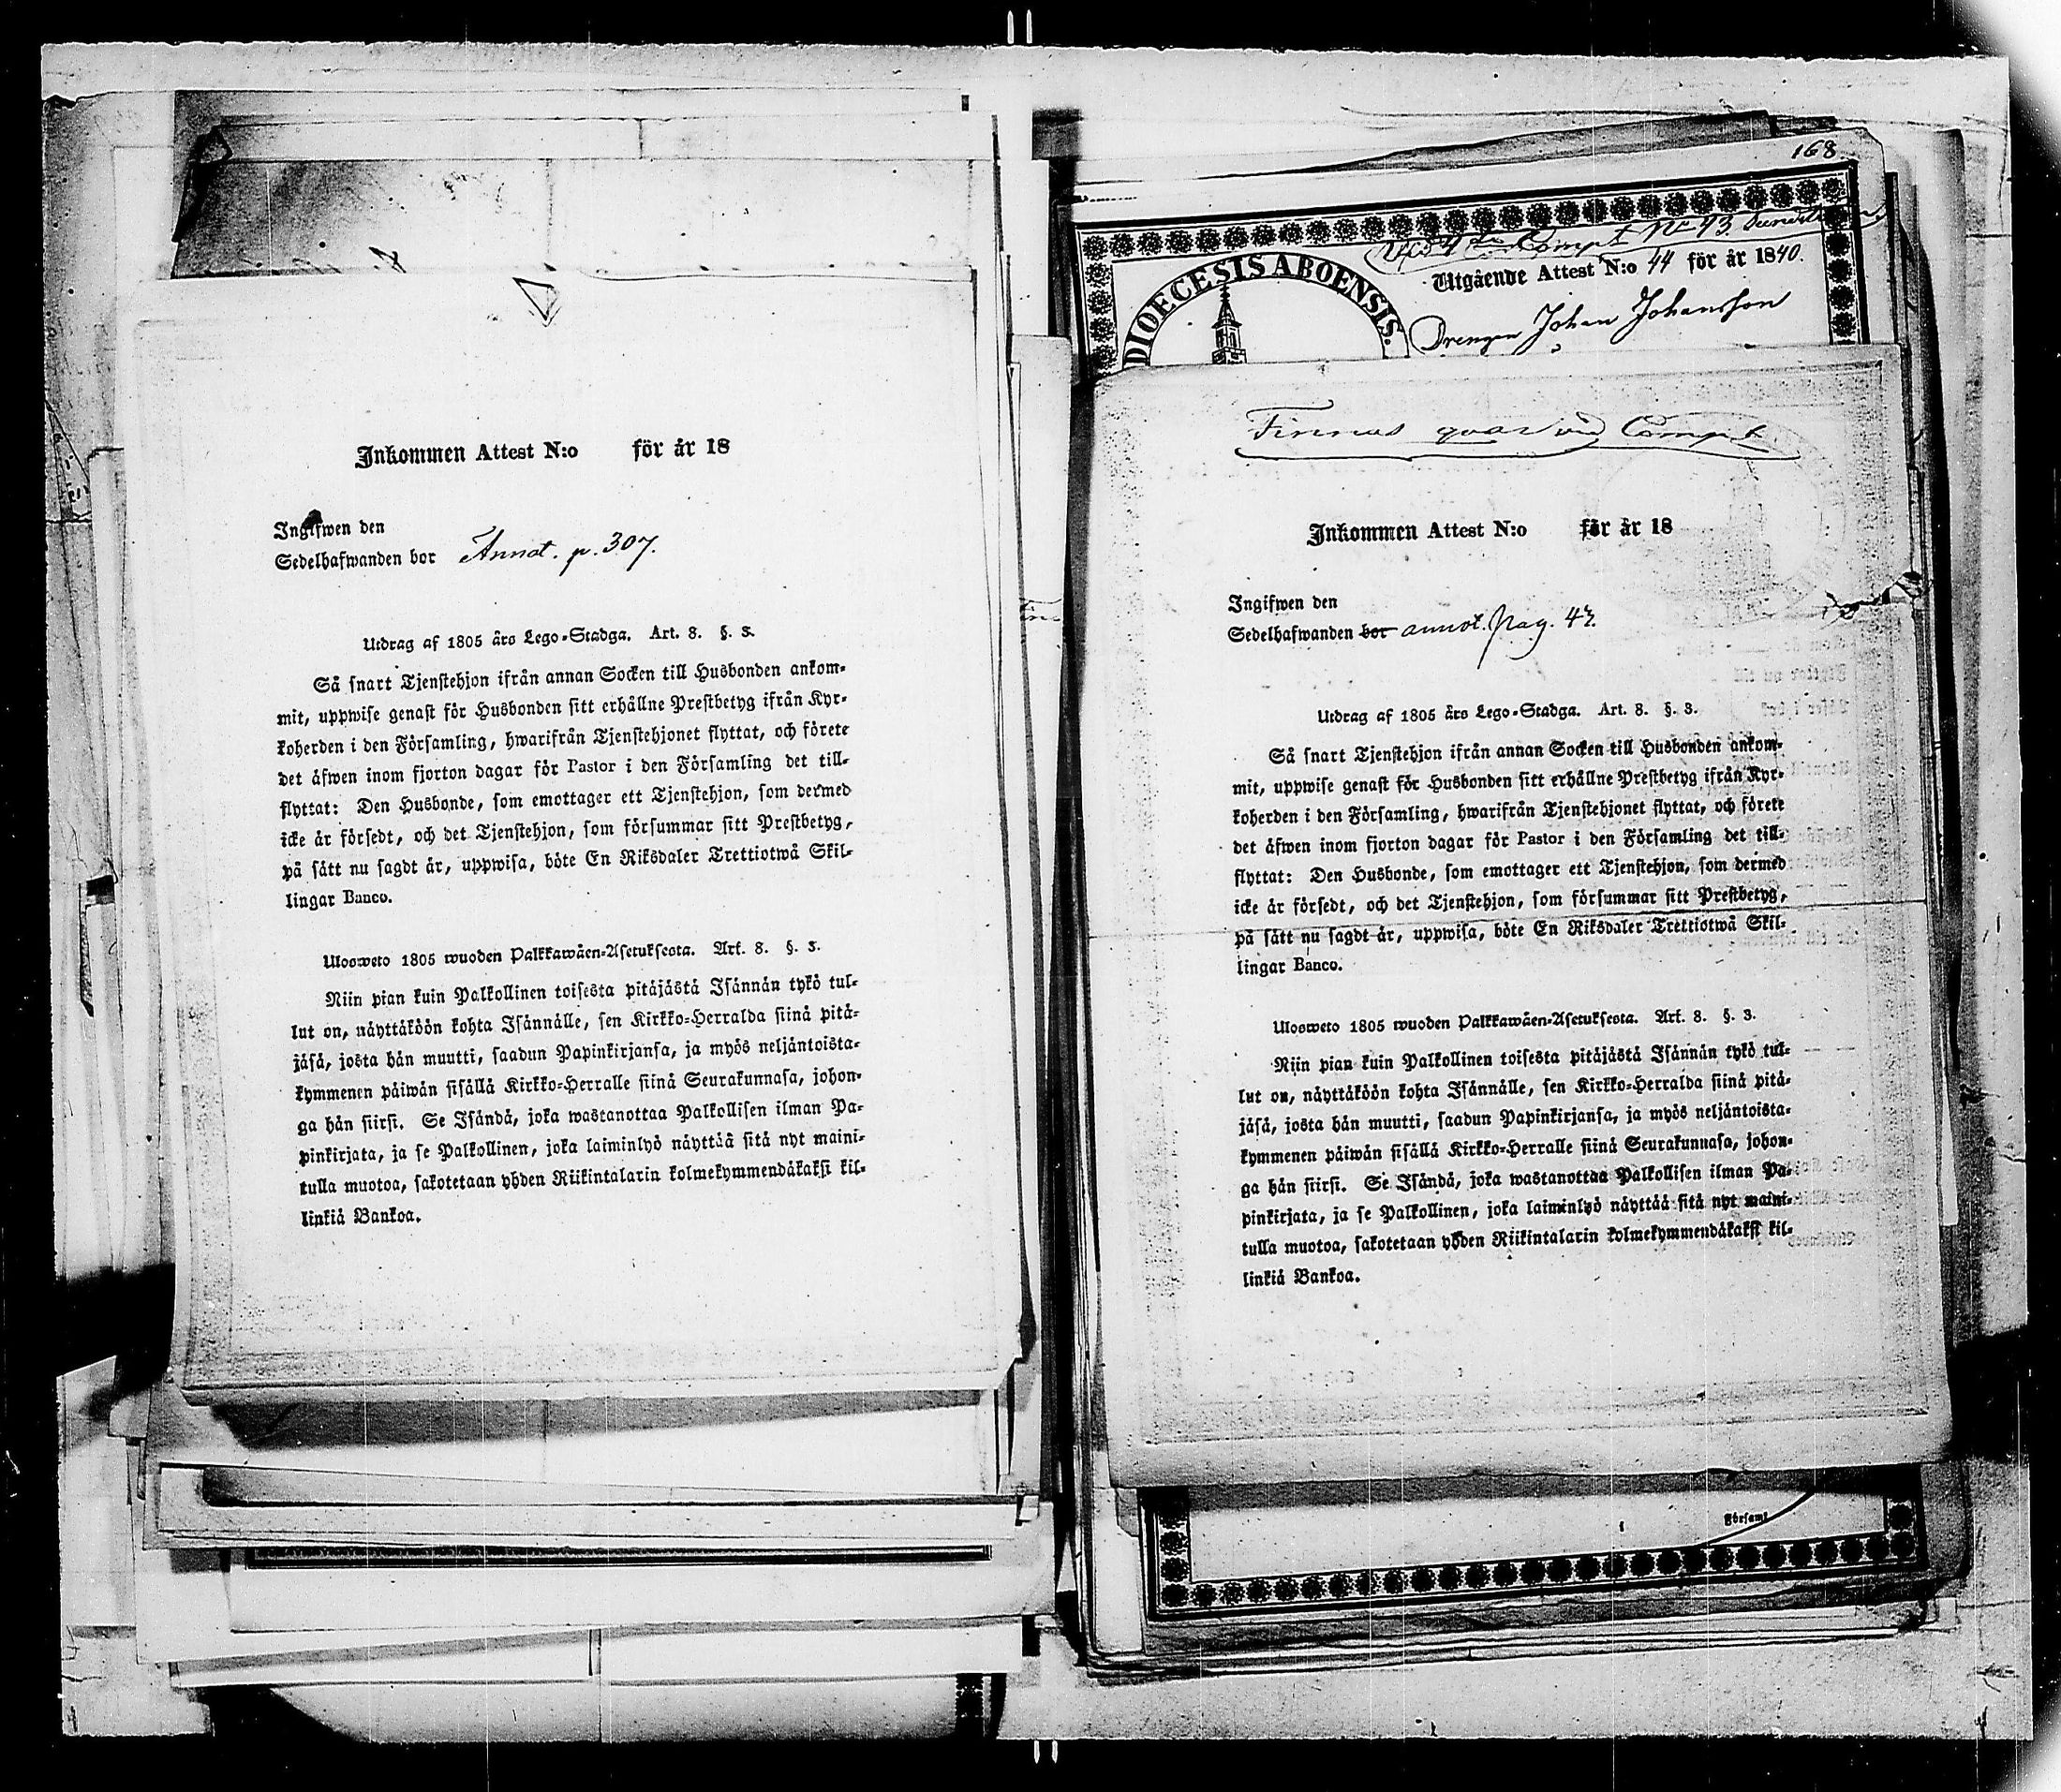 Inkommen Attest N:o för år 18
Ingifwen den
Sedelhafwanden bor Annot. p. 307.
Utdrag af 1805 års Lego-Stadga. Art. 8. §. 3.
Så snart Tjenstehjon ifrån annan Socken till Husbonden ankom-
mit, uppwise genast för Husbonden sitt erhållne Prestbetyg ifrån Kyr-
koherden i den Församling, hwarifrån Tjenstehjonet flyttat, och förete
det äfwen inom fjorton dagar för Pastor i den Församling det till-
flyttat: Den Husbonde, som emottager ett Tjenstehjon, som dermed
icke är försedt, och det Tjenstehjon, som försummar sitt Prestbetyg,
på sätt nu sagdt är, uppwisa, böte En Riksdaler Trettiotwå Skil-
lingar Banco.
Ulosweto 1805 wuoden Palkkawäen-Asetuksesta. Art. 8. §. 3.
Niin pian kuin Palkollinen toisesta pitäjästä Isännän tykö tul-
lut on, näyttäköön kohta Isännälle, sen Kirkko-Herralda siinä pitä-
jäsä, josta hän muutti, saadun Papinkirjansa, ja myös neljäntoista-
kymmenen päiwän sisällä Kirkko-Herralle siinä Seurakunnasa, johon-
ga hän siirsi. Se Isändä, joka wastanottaa Palkollisen ilman Pa-
pinkirjata, ja se Palkollinen, joka laiminlyö näyttää sitä nyt maini-
tulla muotoa, sakotetaan yhden Riikintalarin kolmekymmendäkaksi kil-
linkiä Bankoa.
168
N:o 43
Utgående Attest N:o 44 för år 1840.
DIOECESIS ABOENSIS.
Drengen Johan Johansson
Finnas qvar vid Compt
Inkommen Attest N:o för år 18
Ingifwen den
Sedelhafwanden bor annot. pag. 47.
Utdrag af 1805 års Lego-Stadga. Art. 8. §. 3.
Så snart Tjenstehjon ifrån annan Socken till Husbonden ankom-
mit, uppwise genast för Husbonden sitt erhållne Prestbetyg ifrån Kyr-
koherden i den Församling, hwarifrån Tjenstehjonet flyttat, och förete
det äfwen inom fjorton dagar för Pastor i den Församling det till-
flyttat: Den Husbonde, som emottager ett Tjenstehjon, som dermed
icke är försedt, och det Tjenstehjon, som försummar sitt Prestbetyg,
på sätt nu sagdt är, uppwisa, böte En Riksdaler Trettiotwå Skil-
lingar Banco.
Ulosweto 1805 wuoden Palkkawäen-Asetuksesta. Art. 8. §. 3.
Niin pian kuin Palkollinen toisesta pitäjästä Isännän tykö tul-
lut on, näyttäköön kohta Isännälle, sen Kirkko-Herralda siinä pitä-
jäsä, josta hän muutti, saadun Papinkirjansa, ja myös neljäntoista-
kymmenen päiwän sisällä Kirkko-Herralle siinä Seurakunnasa, johon-
ga hän siirsi. Se Isändä, joka wastanottaa Palkollisen ilman Pa-
pinkirjata, ja se Palkollinen, joka laiminlyö näyttää sitä nyt maini-
tulla muotoa, sakotetaan yhden Riikintalarin kolmekymmendäkaksi kil-
linkiä Bankoa.
Församl